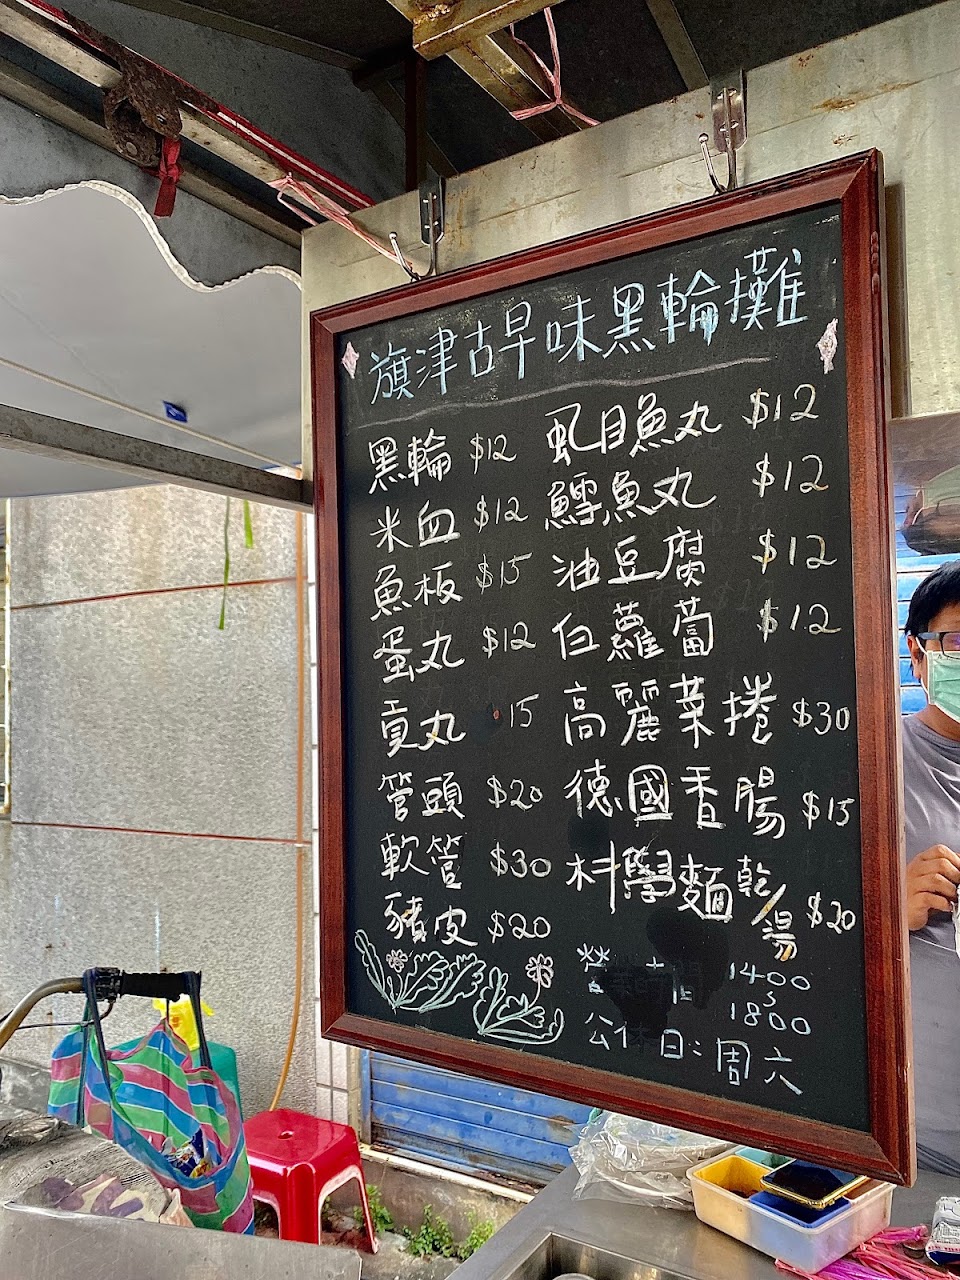 旗津古早味黑輪攤
黑輪 $12 虱目魚丸 $12
米血 $12 鱈魚丸 $12
魚板 $15 油豆腐 $12
蛋丸 $12 白蘿蔔 $12
貢丸 15 高麗菜捲 $30
管頭 $20 德國香腸 $15
軟管 $30 科學麵 乾/湯 $20
豬皮 $20
營業時間 1400
1800
公休日:周六